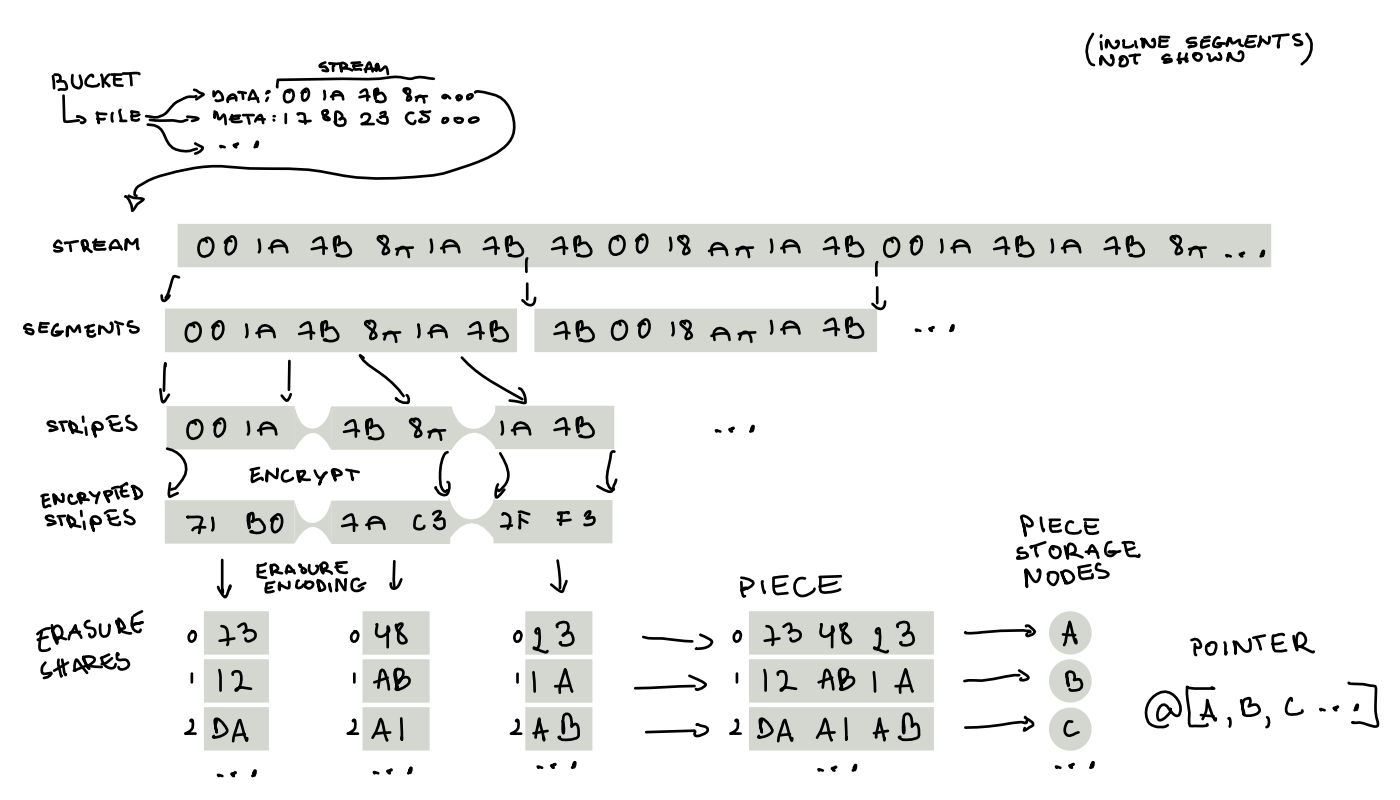 (INLINE SEGMENTS)
NOT SHOWN
BUCKET
STREAM
FILE
DATA: 00 1A 7B 8A ...
META: 17 8B 23 C5 ...
...
STREAM
00 1A 7B 8A 1A 7B 7B 00 18 AA 1A 7B 00 1A 7B 1A 7B 8A ...
SEGMENTS
00 1A 7B 8A 1A 7B
7B 00 18 AA 1A 7B
...
STRIPES
00 1A
7B 8A
1A 7B
...
ENCRYPT
ENCRYPTED
STRIPES
71 B0
7A C3
7F F3
ERASURE
ENCODING
PIECE
PIECE
STORAGE
NODES
ERASURE
SHARES
0 73
0 48
0 23
0 73 48 23
A
1 12
1 AB
1 1A
1 12 AB 1A
B
2 DA
2 A1
2 AB
2 DA A1 AB
C
...
...
...
...
...
POINTER
@[A, B, C ...]